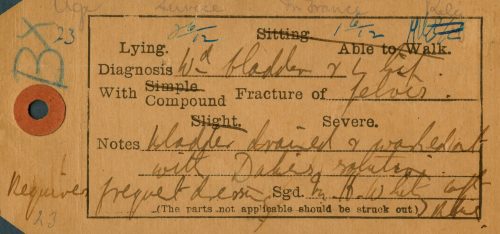 Age Service In France
Bx 23 26/12 Sitting. 1 6/12
Lying. Able to Walk.
Diagnosis Wd bladder &
With Simple
Compound Fracture of pelvis.
Slight. Severe.
Notes bladder drained & washed out
with Dakins solution.
Requires frequent dressing Sgd. White Capt
23 (The parts not applicable should be struck out)